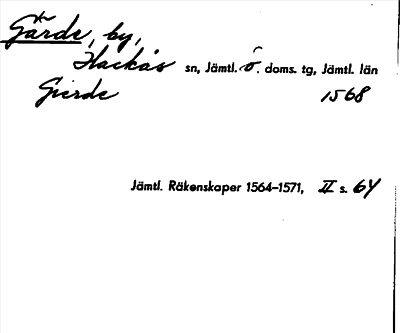 Gärde, by,
Hackås sn, Jämtl. ö. doms. tg, Jämtl. län
Gierde 1568
Jämtl. Räkenskaper 1564–1571, II s. 64